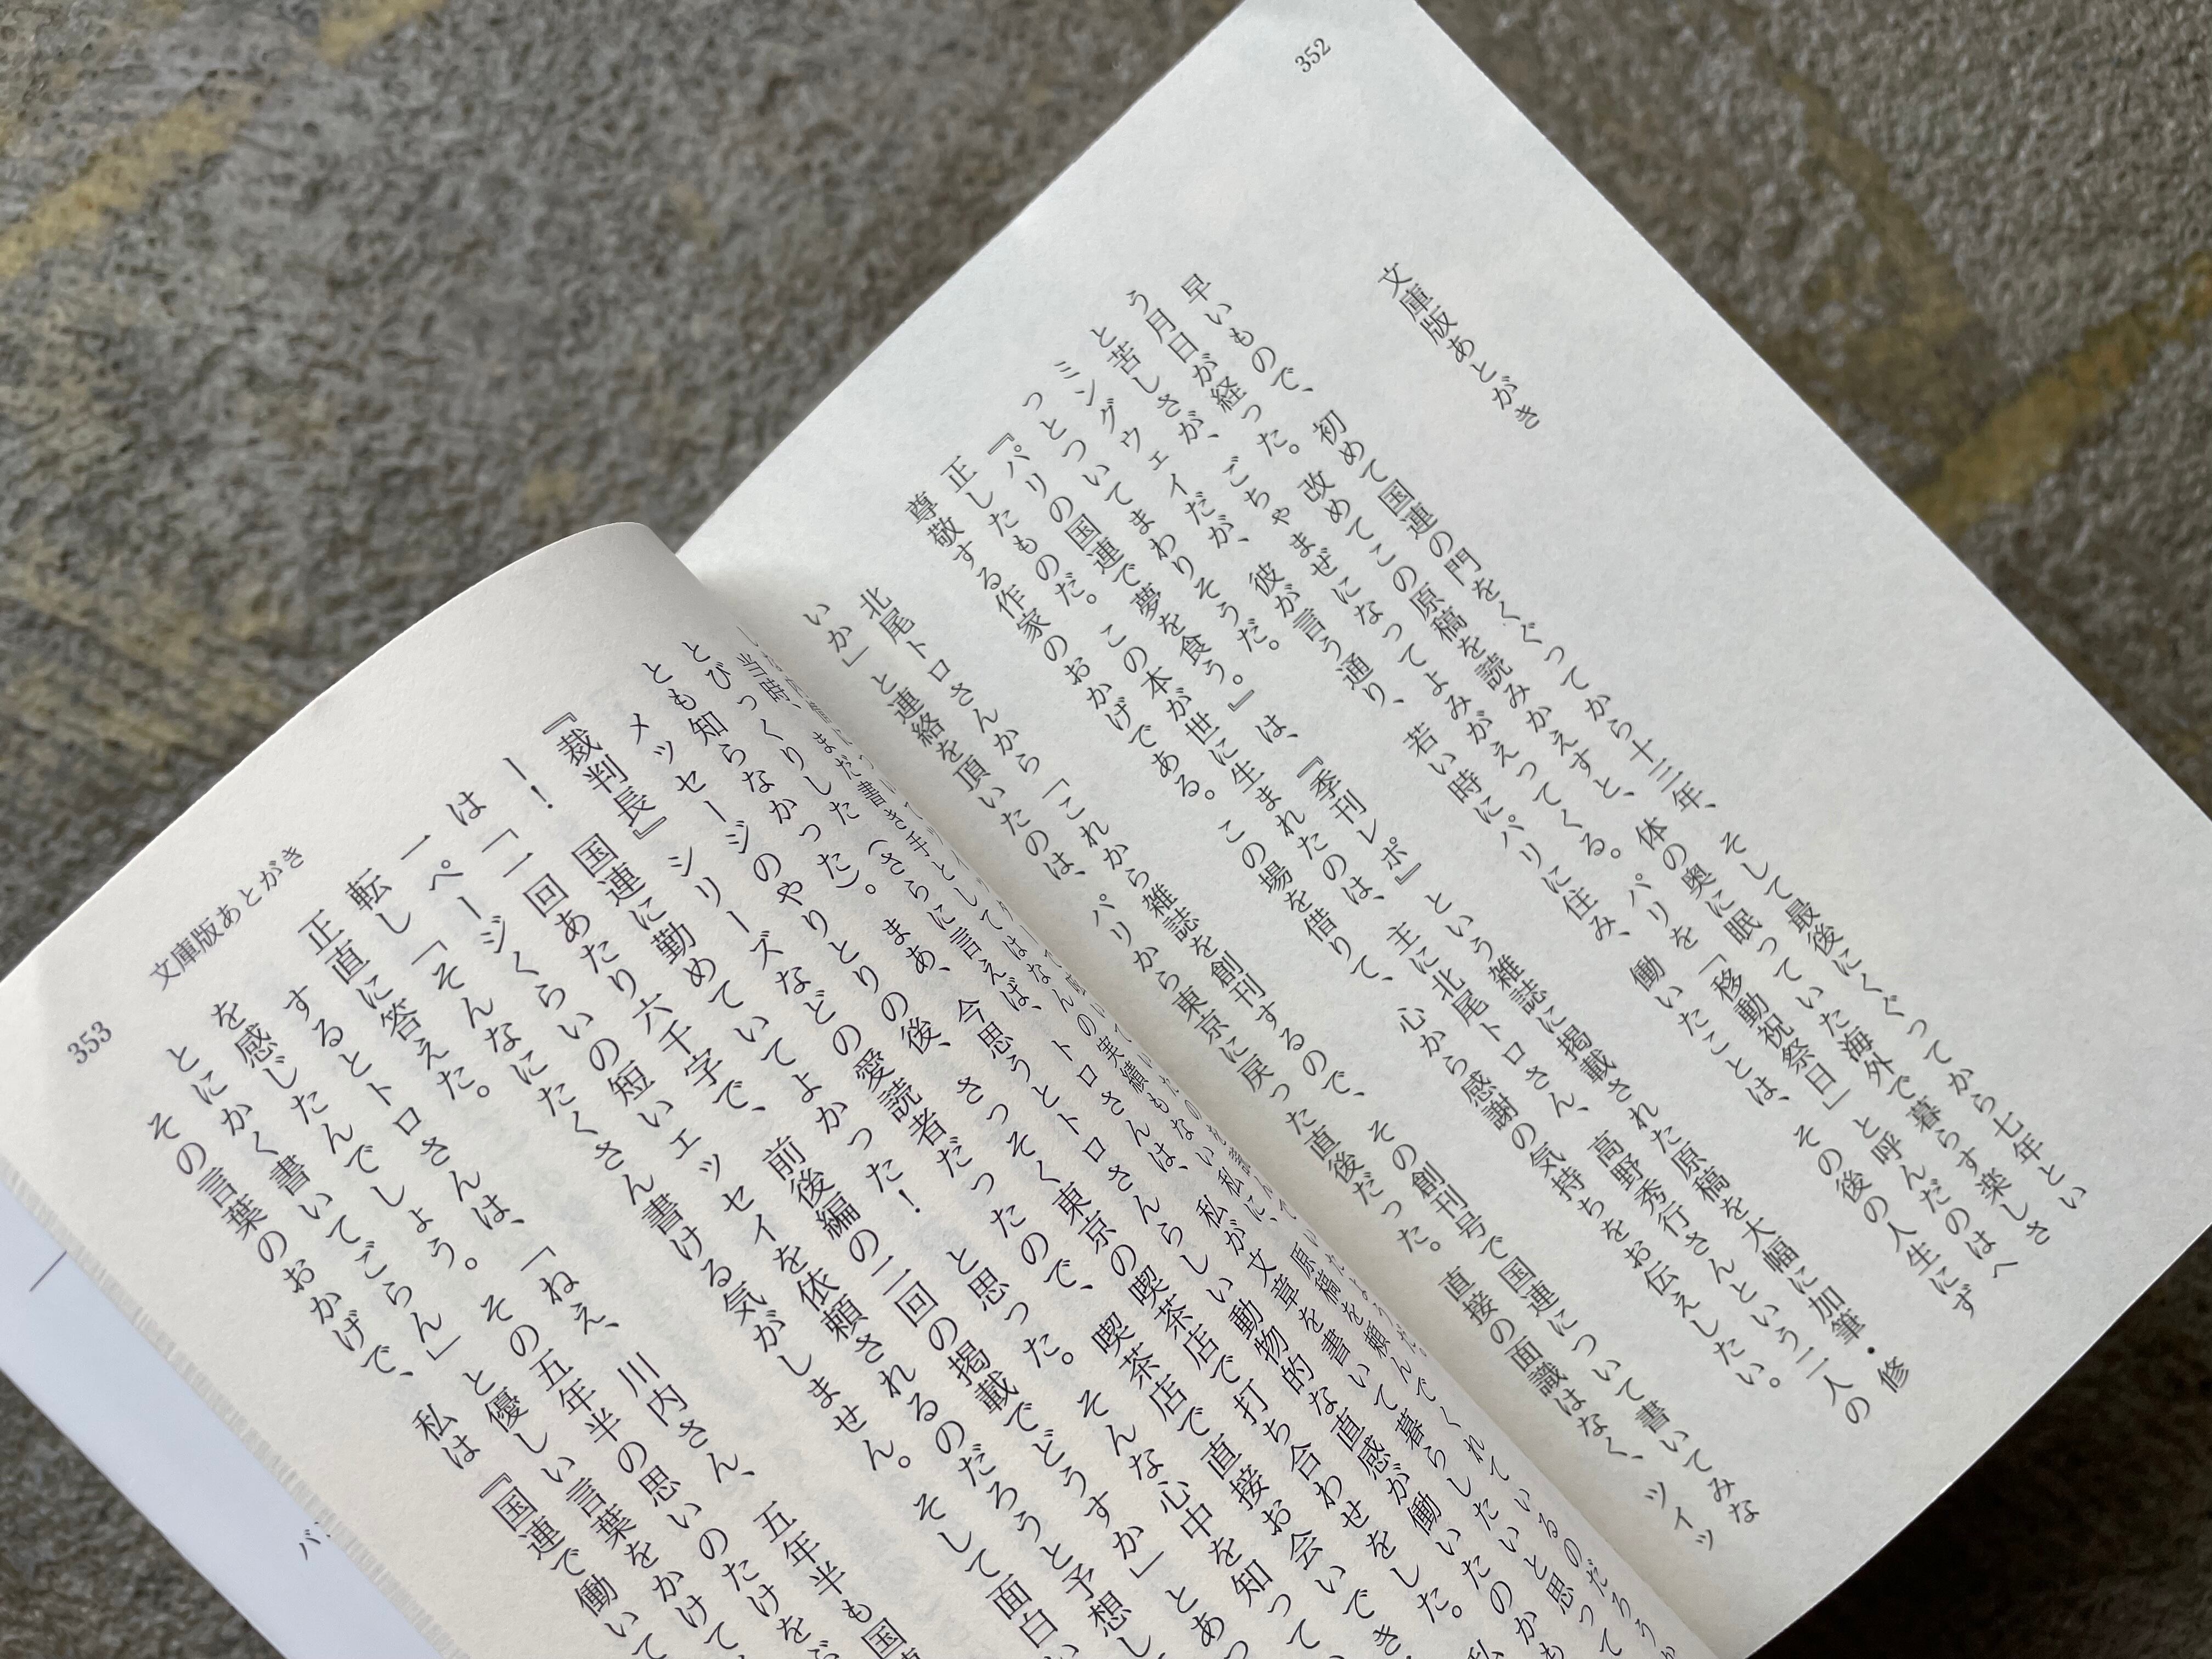 352
文庫版あとがき
早いもので、初めて国連の門をくぐってから十三年、そして最後にくぐってから七年とい
う月日が経った。改めてこの原稿を読みかえすと、体の奥に眠っていた海外で暮らす楽しさ
と苦しさが、ごちゃまぜになってよみがえってくる。パリを「移動祝祭日」と呼んだのはヘ
ミングウェイだが、彼が言う通り、若い時にパリに住み、働いたことは、その後の人生にず
っとついてまわりそうだ。
『パリの国連で夢を食う。』は、『季刊レポ』という雑誌に掲載された原稿を大幅に加筆・修
正したものだ。この本が世に生まれたのは、主に北尾トロさん、高野秀行さんという二人の
尊敬する作家のおかげである。この場を借りて、心から感謝の気持ちをお伝えしたい。
北尾トロさんから「これから雑誌を創刊するので、その創刊号で国連について書いてみな
いか」と連絡を頂いたのは、パリから東京に戻った直後だった。直接の面識はなく、ツイッ
当時、まだ書き手としてはなんの実績もない私に、原稿を頼んでくれているのだろうか
とびっくりした（さらに言えば、トロさんは、私が文章を書いて暮らしたいと思って
とも知らなかった）。まあ、今思うとトロさんらしい動物的な直感が働いたのかも
メッセージのやりとりの後、さっそく東京の喫茶店で打ち合わせをした。
『裁判長』シリーズなどの愛読者だったので、喫茶店で直接お会いでき
ー！　国連に勤めていてよかった！　と思った。そんな心中を知って
は「一回あたり六千字で、前後編の二回の掲載でどうすか」とあっ
一ページくらいの短いエッセイを依頼されるのだろうと予想し
転し「そんなにたくさん書ける気がしません。そして面白い
正直に答えた。
するとトロさんは、「ねえ、川内さん、五年半も国連
を感じたんでしょう。その五年半の思いのたけをぶ
とにかく書いてごらん」と優しい言葉をかけて
その言葉のおかげで、私は『国連で働いて
文庫版あとがき
353
パ